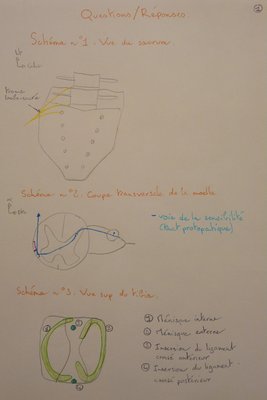 Questions/Réponses
Schéma n°1 : Vue du sacrum
tronc
Schéma n°2 : Coupe transversale de la moelle
→ voie de la sensibilité
(tact protopathique)
Schéma n°3 : Vue sup du tibia
① Ménisque interne
② Ménisque externe
③ Insersion du ligament
croisé antérieur
④ Insersion du ligament
croisé postérieur